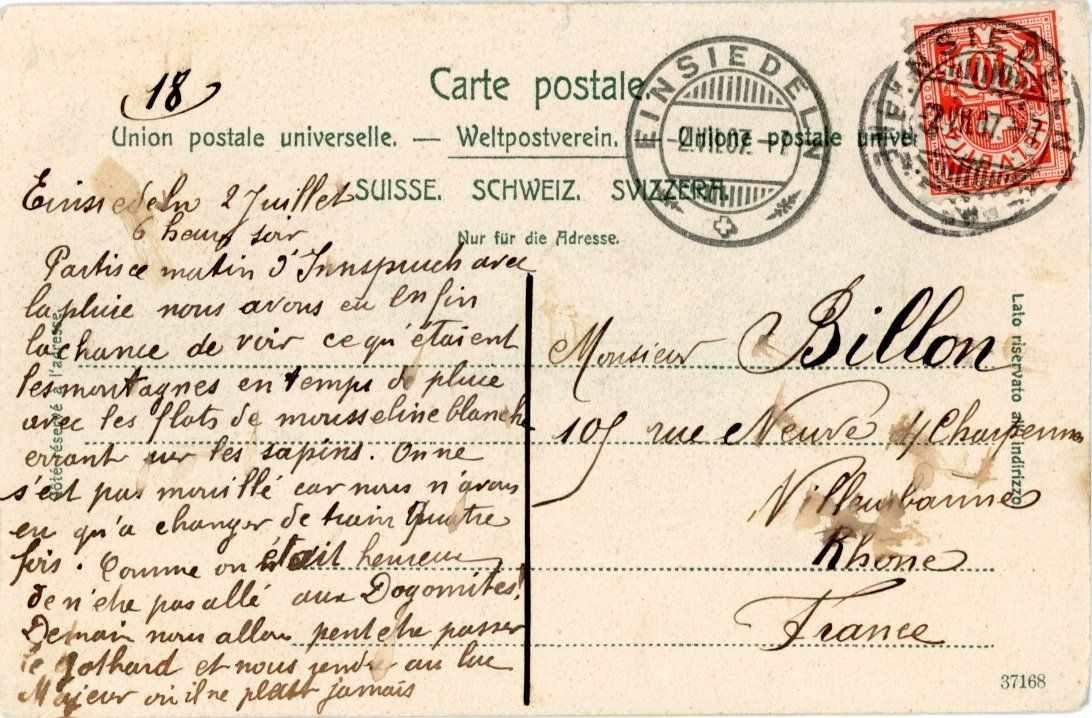 18
Carte postale
Union postale universelle. — Weltpostverein. — Unione postale univer
SUISSE. SCHWEIZ. SVIZZERA.
Nur für die Adresse.
Côté réservé à l'adresse.
Lato riservato all'indirizzo
EINSIEDELN
-2.VII.07.-7
EINSIEDELN
2.VII.07.
10
HELVETIA
Einsiedeln 2 Juillet
6 heurs soir
Partis ce matin d'Innspruch avec
la pluie nous avons eu enfin
la chance de voir ce qu'étaient
les montagnes en temps de pluie
avec les flots de mousseline blanche
errant sur les sapins. On ne
s'est pas mouillé car nous n'avons
eu qu'a changer de train quatre
fois. Comme on était heureux
de n'etre pas allé aux Dogomites!
Demain nous allons peut etre passer
le Gothard et nous rendre au lac
Majeur où il ne pleut jamais
Monsieur Billon
105 rue Neuve 4 Charpennes
Villeurbanne
Rhône
France
37168